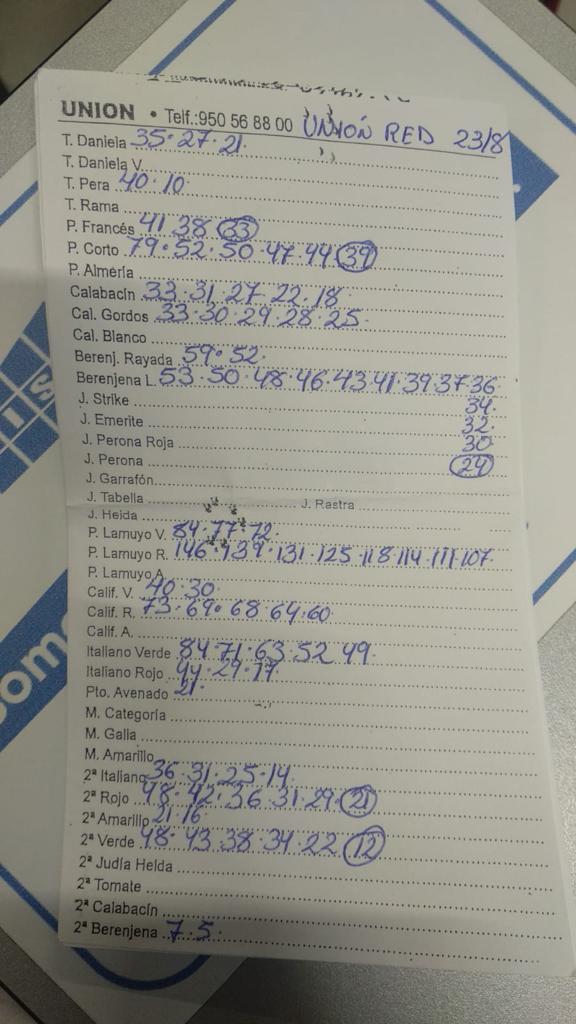 UNION • Telf.:950 56 88 00 UNIÓN RED 23/8
T. Daniela 35·27·21.
T. Daniela V.
T. Pera 40·10.
T. Rama
P. Francés 41 38 (33)
P. Corto 79·52·50·47·44 (39)
P. Almería
Calabacín 33·31·27·22·18
Cal. Gordos 33·30·29·28·25.
Cal. Blanco
Berenj. Rayada 59·52.
Berenjena L. 53·50·48·46·43·41·39 37 36.
J. Strike 34.
J. Emerite 32.
J. Perona Roja 30
J. Perona (24)
J. Garrafón
J. Tabella J. Rastra
J. Helda
P. Lamuyo V. 84·77·72.
P. Lamuyo R. 146·139·131·125·118·114·111·107.
P. Lamuyo A.
Calif. V. 40·30.
Calif. R. 73·69·68 64·60
Calif. A.
Italiano Verde 84·71·63·52 49.
Italiano Rojo 44·29·17.
Pto. Avenado 21.
M. Categoría
M. Galia
M. Amarillo
2ª Italiano 36·31·25·14.
2ª Rojo 48·42·36 31·29 (21)
2ª Amarillo 21·16.
2ª Verde 48·43 38·34·22 (12)
2ª Judía Helda
2ª Tomate
2ª Calabacín
2ª Berenjena 7·5.